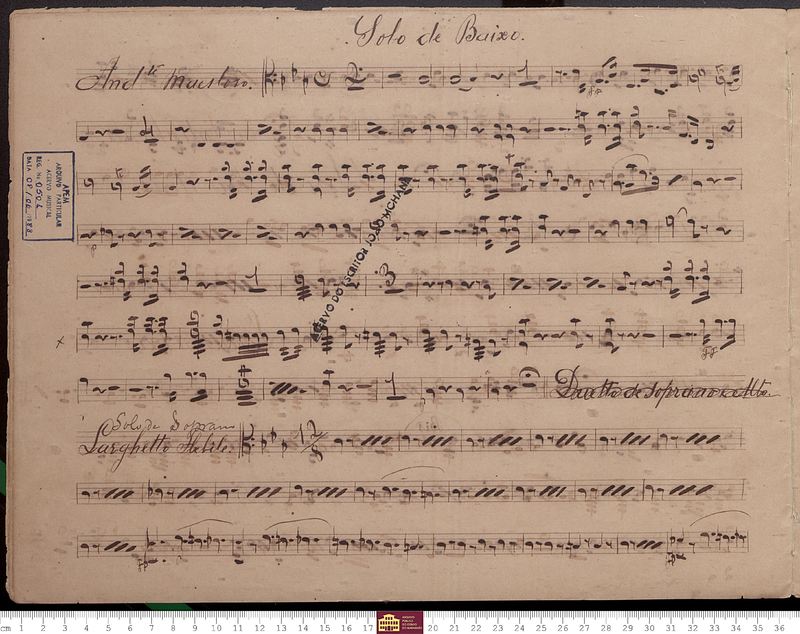 Solo de Baixo.
And.te Maestoso.
APEM
ARQUIVO PARTICULAR
ACERVO MUSICAL
REG. No. 0504
ACERVO DO ESCRITOR JOÃO MOHANA
Duetto de Soprano e Alto.
Solo de Soprano
Larghetto
cm 1 2 3 4 5 6 7 8 9 10 11 12 13 14 15 16 17 20 21 22 23 24 25 26 27 28 29 30 31 32 33 34 35 36